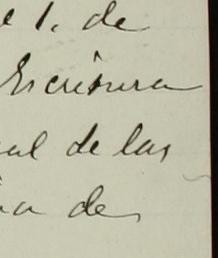 l 1. de
Escritura
al de las
a de